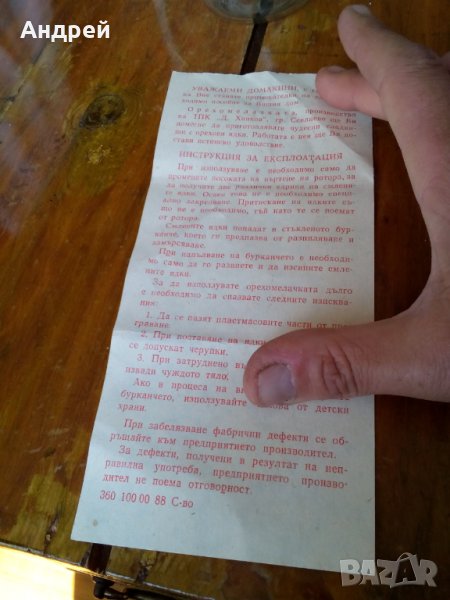 Андрей
УВАЖАЕМИ ДОМАКИНИ, с
на Вие ставате
ходимо пособие за Вашия дом
Орехомелачката, производство
на ТПК „Д. Хонков", гр. Севлиево ще Ви
помогне да приготовлявате чудесни сладки-
ши с орехови ядки. Работата с нея ще Ви до-
стави истинско удоволствие.
ИНСТРУКЦИЯ ЗА ЕКСПЛОАТАЦИЯ
При използуване е необходимо само да
промените посоката на въртене на ротора, за
да получите два различни едрини на смлени-
те ядки. Освен това не е необходимо специ-
ално закрепване. Притискане на ядките съ-
що не е необходимо, тъй като те се поемат
от ротора.
Смлените ядки попадат в стъкленото бур-
канче, което ги предпазва от разпиляване и
замърсяване.
При напълване на бурканчето е необходи-
мо само да го развиете и да изсипете смле-
ните ядки.
За да използувате орехомелачката дълго
е необходимо да спазвате следните изисква-
ния:
1. Да се пазят пластмасовите части от пре-
гряване.
2. При поставяне на ядки
се попускат черупки.
3. При затруднено въ
извади чуждото тяло.
Ако в процеса на
бурканчето, използувайте
от детски
храни.
При забелязване фабрични дефекти се об-
ръщайте към предприятието производител.
За дефекти, получени в резултат на неп-
равилна употреба, предприятието произво-
дител не поема отговорност.
360 100 00 88 С-во
BAZAR